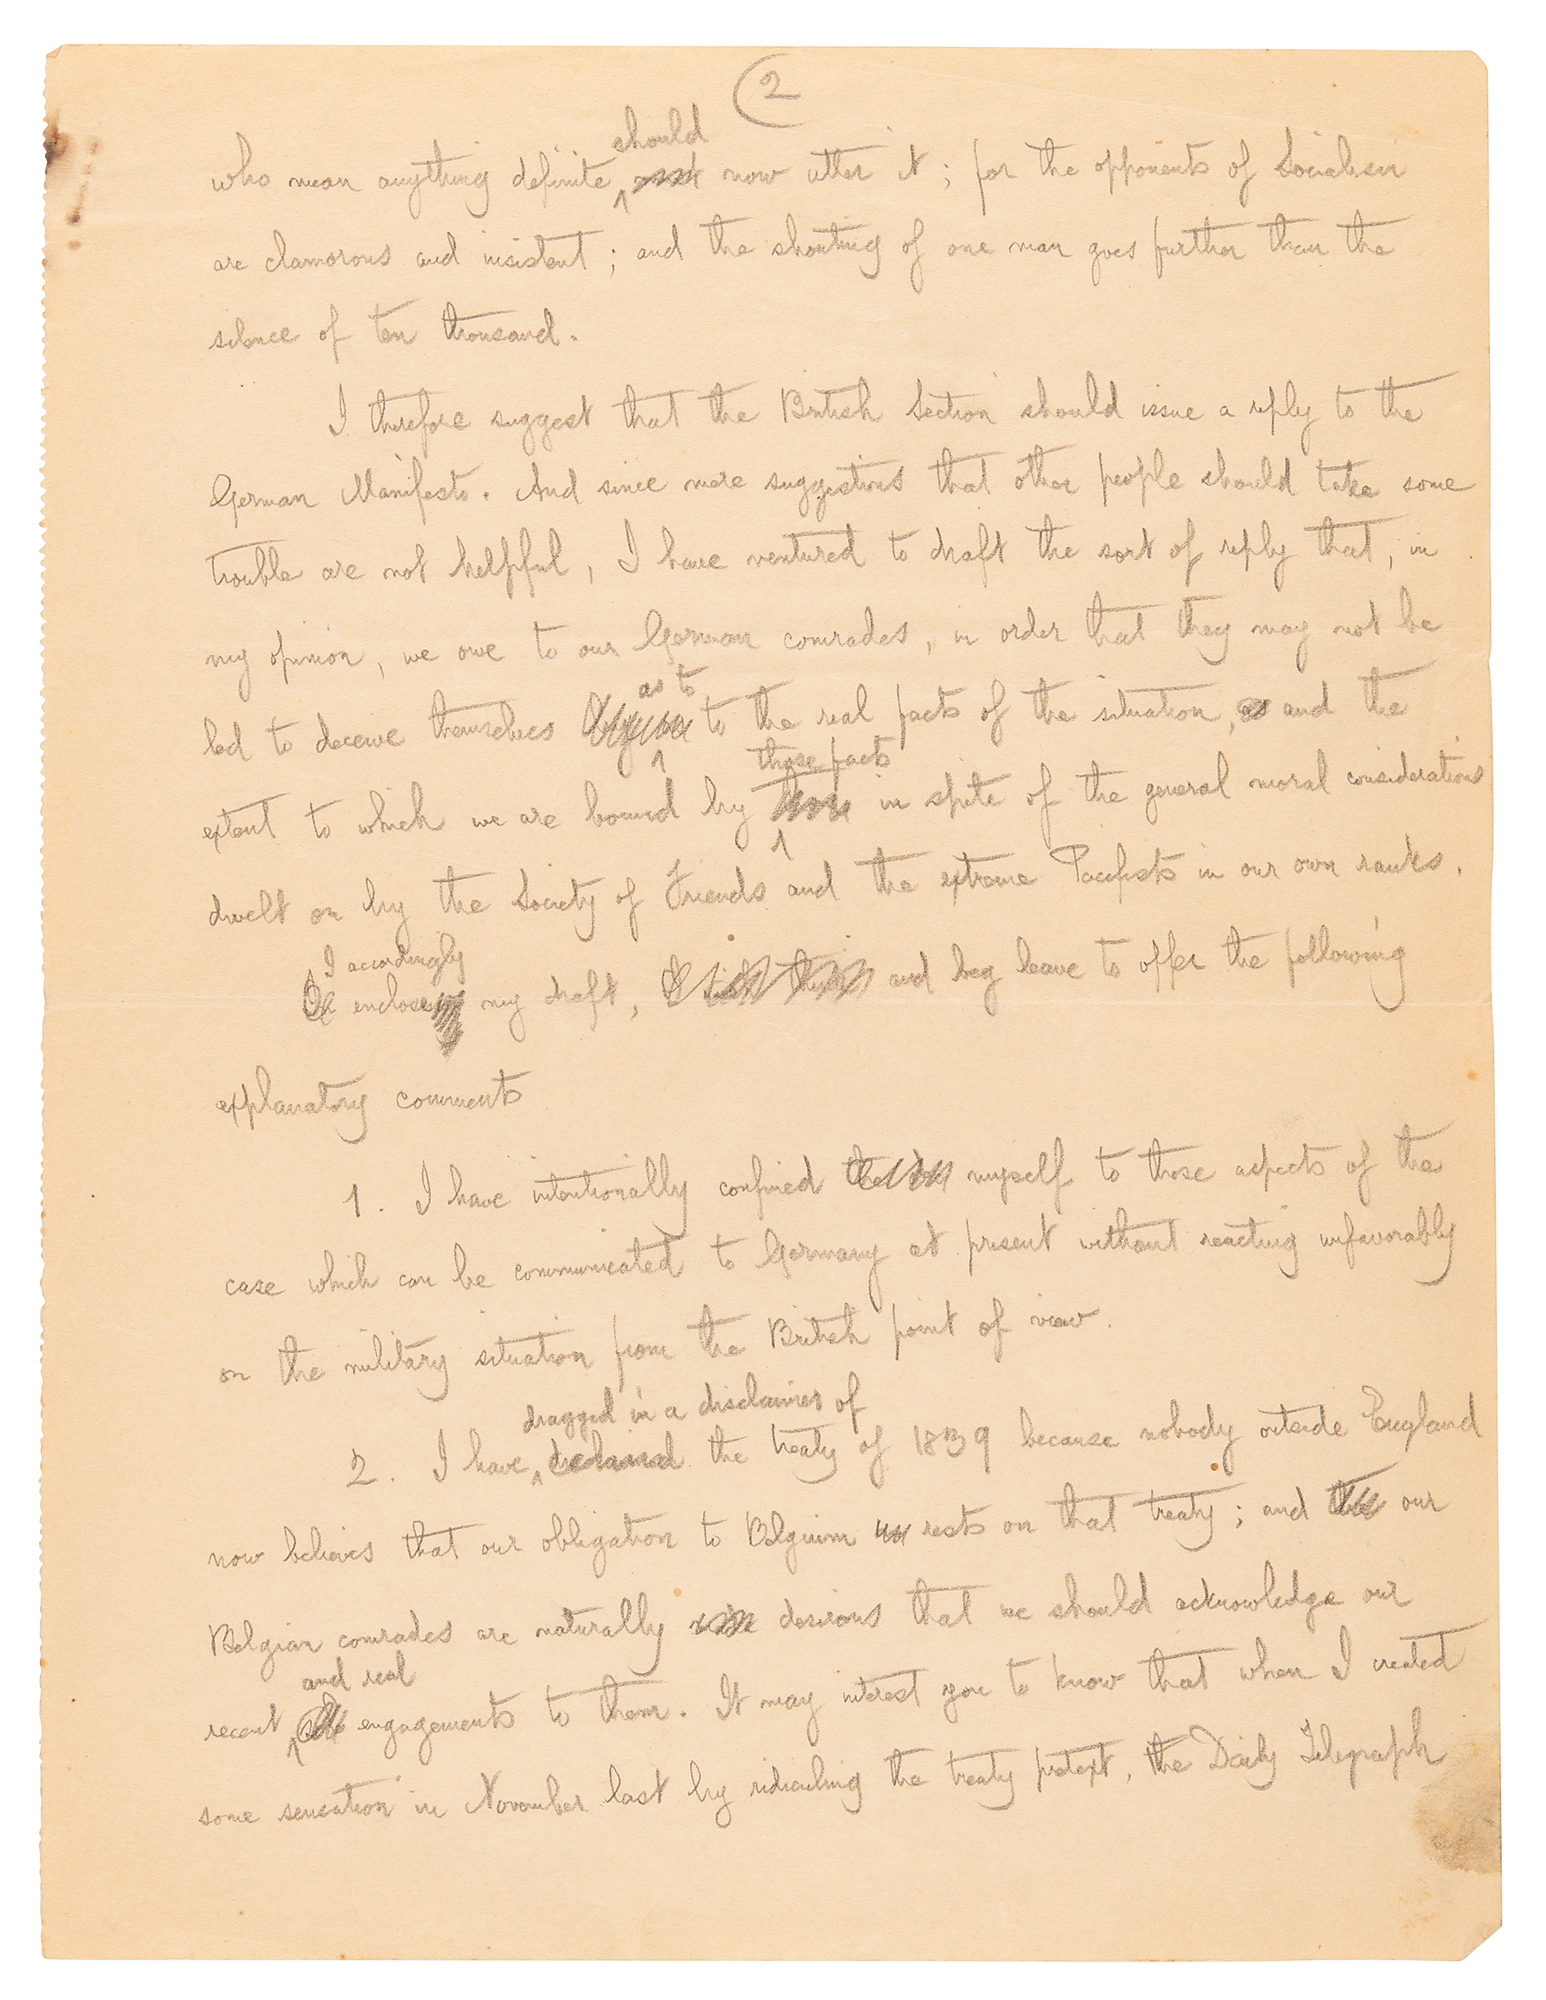 2
should
who mean anything definite must now utter it; for the opponents of Socialism
are clamorous and insistent; and the shouting of one man goes further than the
silence of ten thousand.
I therefore suggest that the British Section should issue a reply to the
German Manifesto. And since mere suggestions that other people should take some
trouble are not helpful, I have ventured to draft the sort of reply that, in
my opinion, we owe to our German comrades, in order that they may not be
as to
led to deceive themselves to the real facts of the situation, and the
those facts
extent to which we are bound by in spite of the general moral considerations
dwelt on by the Society of Friends and the extreme Pacifists in our own ranks.
I accordingly
enclose my draft, and beg leave to offer the following
explanatory comments
1. I have intentionally confined myself to those aspects of the
case which can be communicated to Germany at present without reacting unfavorably
on the military situation from the British point of view.
dragged in a disclaimer of
2. I have the treaty of 1839 because nobody outside England
now believes that our obligation to Belgium rests on that treaty; and our
Belgian comrades are naturally desirous that we should acknowledge our
and real
recent engagements to them. It may interest you to know that when I created
some sensation in November last by ridiculing the treaty pretext, the Daily Telegraph